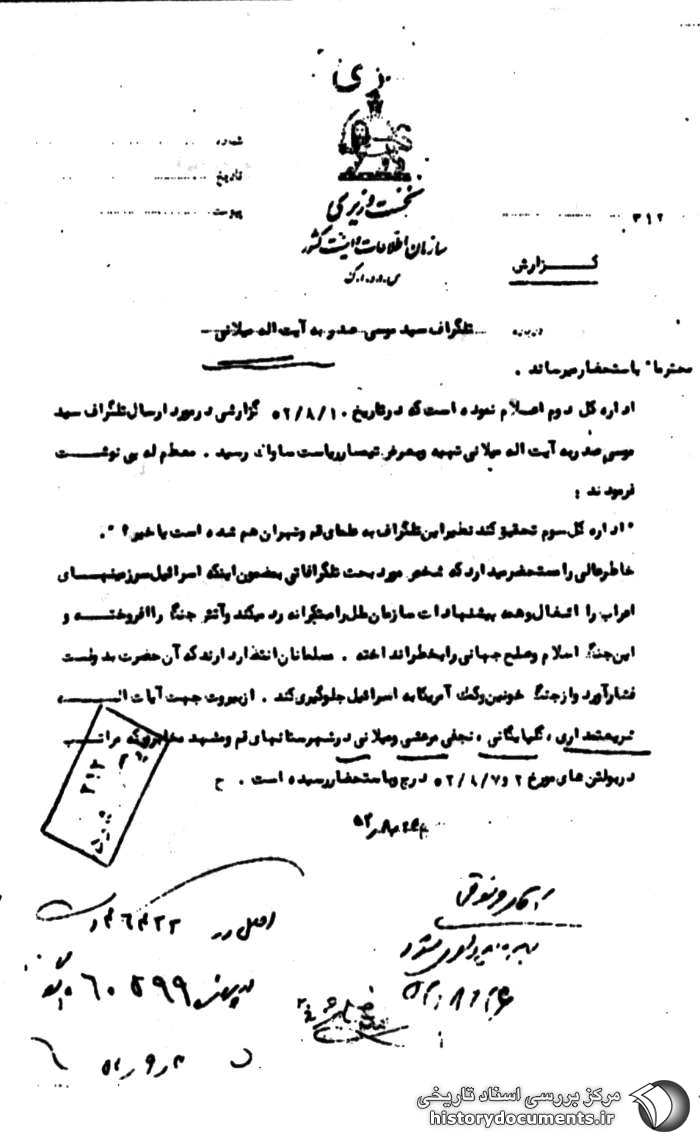 شماره
تاریخ
پیوست
نخست وزیری
سازمان اطلاعات و امنیت کشور
س.ا.و.ا.ک
۳۱۲
گزارش
درباره تلگراف سید موسی صدر به آیت اله میلانی
محترما" باستحضار میرساند .
اداره کل دوم اعلام نموده است که در تاریخ ۵۲/۸/۱۰ گزارشی در مورد ارسال تلگراف سید
موسی صدر به آیت اله میلانی تهیه وبعرض تیمسار ریاست ساواک رسید . معظم له پی نوشت
فرمودند :
"اداره کل سوم تحقیق کند نظیر این تلگراف به علمای قم وتهران هم شده است یا خیر ؟ ".
خاطر عالی را مستحضر میدارد که شخص مورد بحث تلگرافاتی بمضمون اینکه اسرائیل سرزمینهای
اعراب را اشغال وهمه پیشنهادات سازمان ملل را متکبرانه رد میکند وآتش جنگ را افروخته و
این جنگ اسلام وصلح جهانی را بخطر انداخته . مسلمانان انتظار دارند که آن حضرت بدولت
فشار آورد واز جنگ خونین وکمک آمریکا به اسرائیل جلوگیری کند . از بیروت جهت آیات اله
شریعتمداری ، گلپایگانی ، نجفی مرعشی ومیلانی در شهرستانهای قم ومشهد مخابره که مراتب
در بولتن های مورخ ۲ و ۵۲/۸/۷ درج وباستحضار رسیده است . ح
۳۱۲
اصل در
بایگانی شود
۶۰۵۹۹
مرکز بررسی اسناد تاریخی
historydocuments.ir